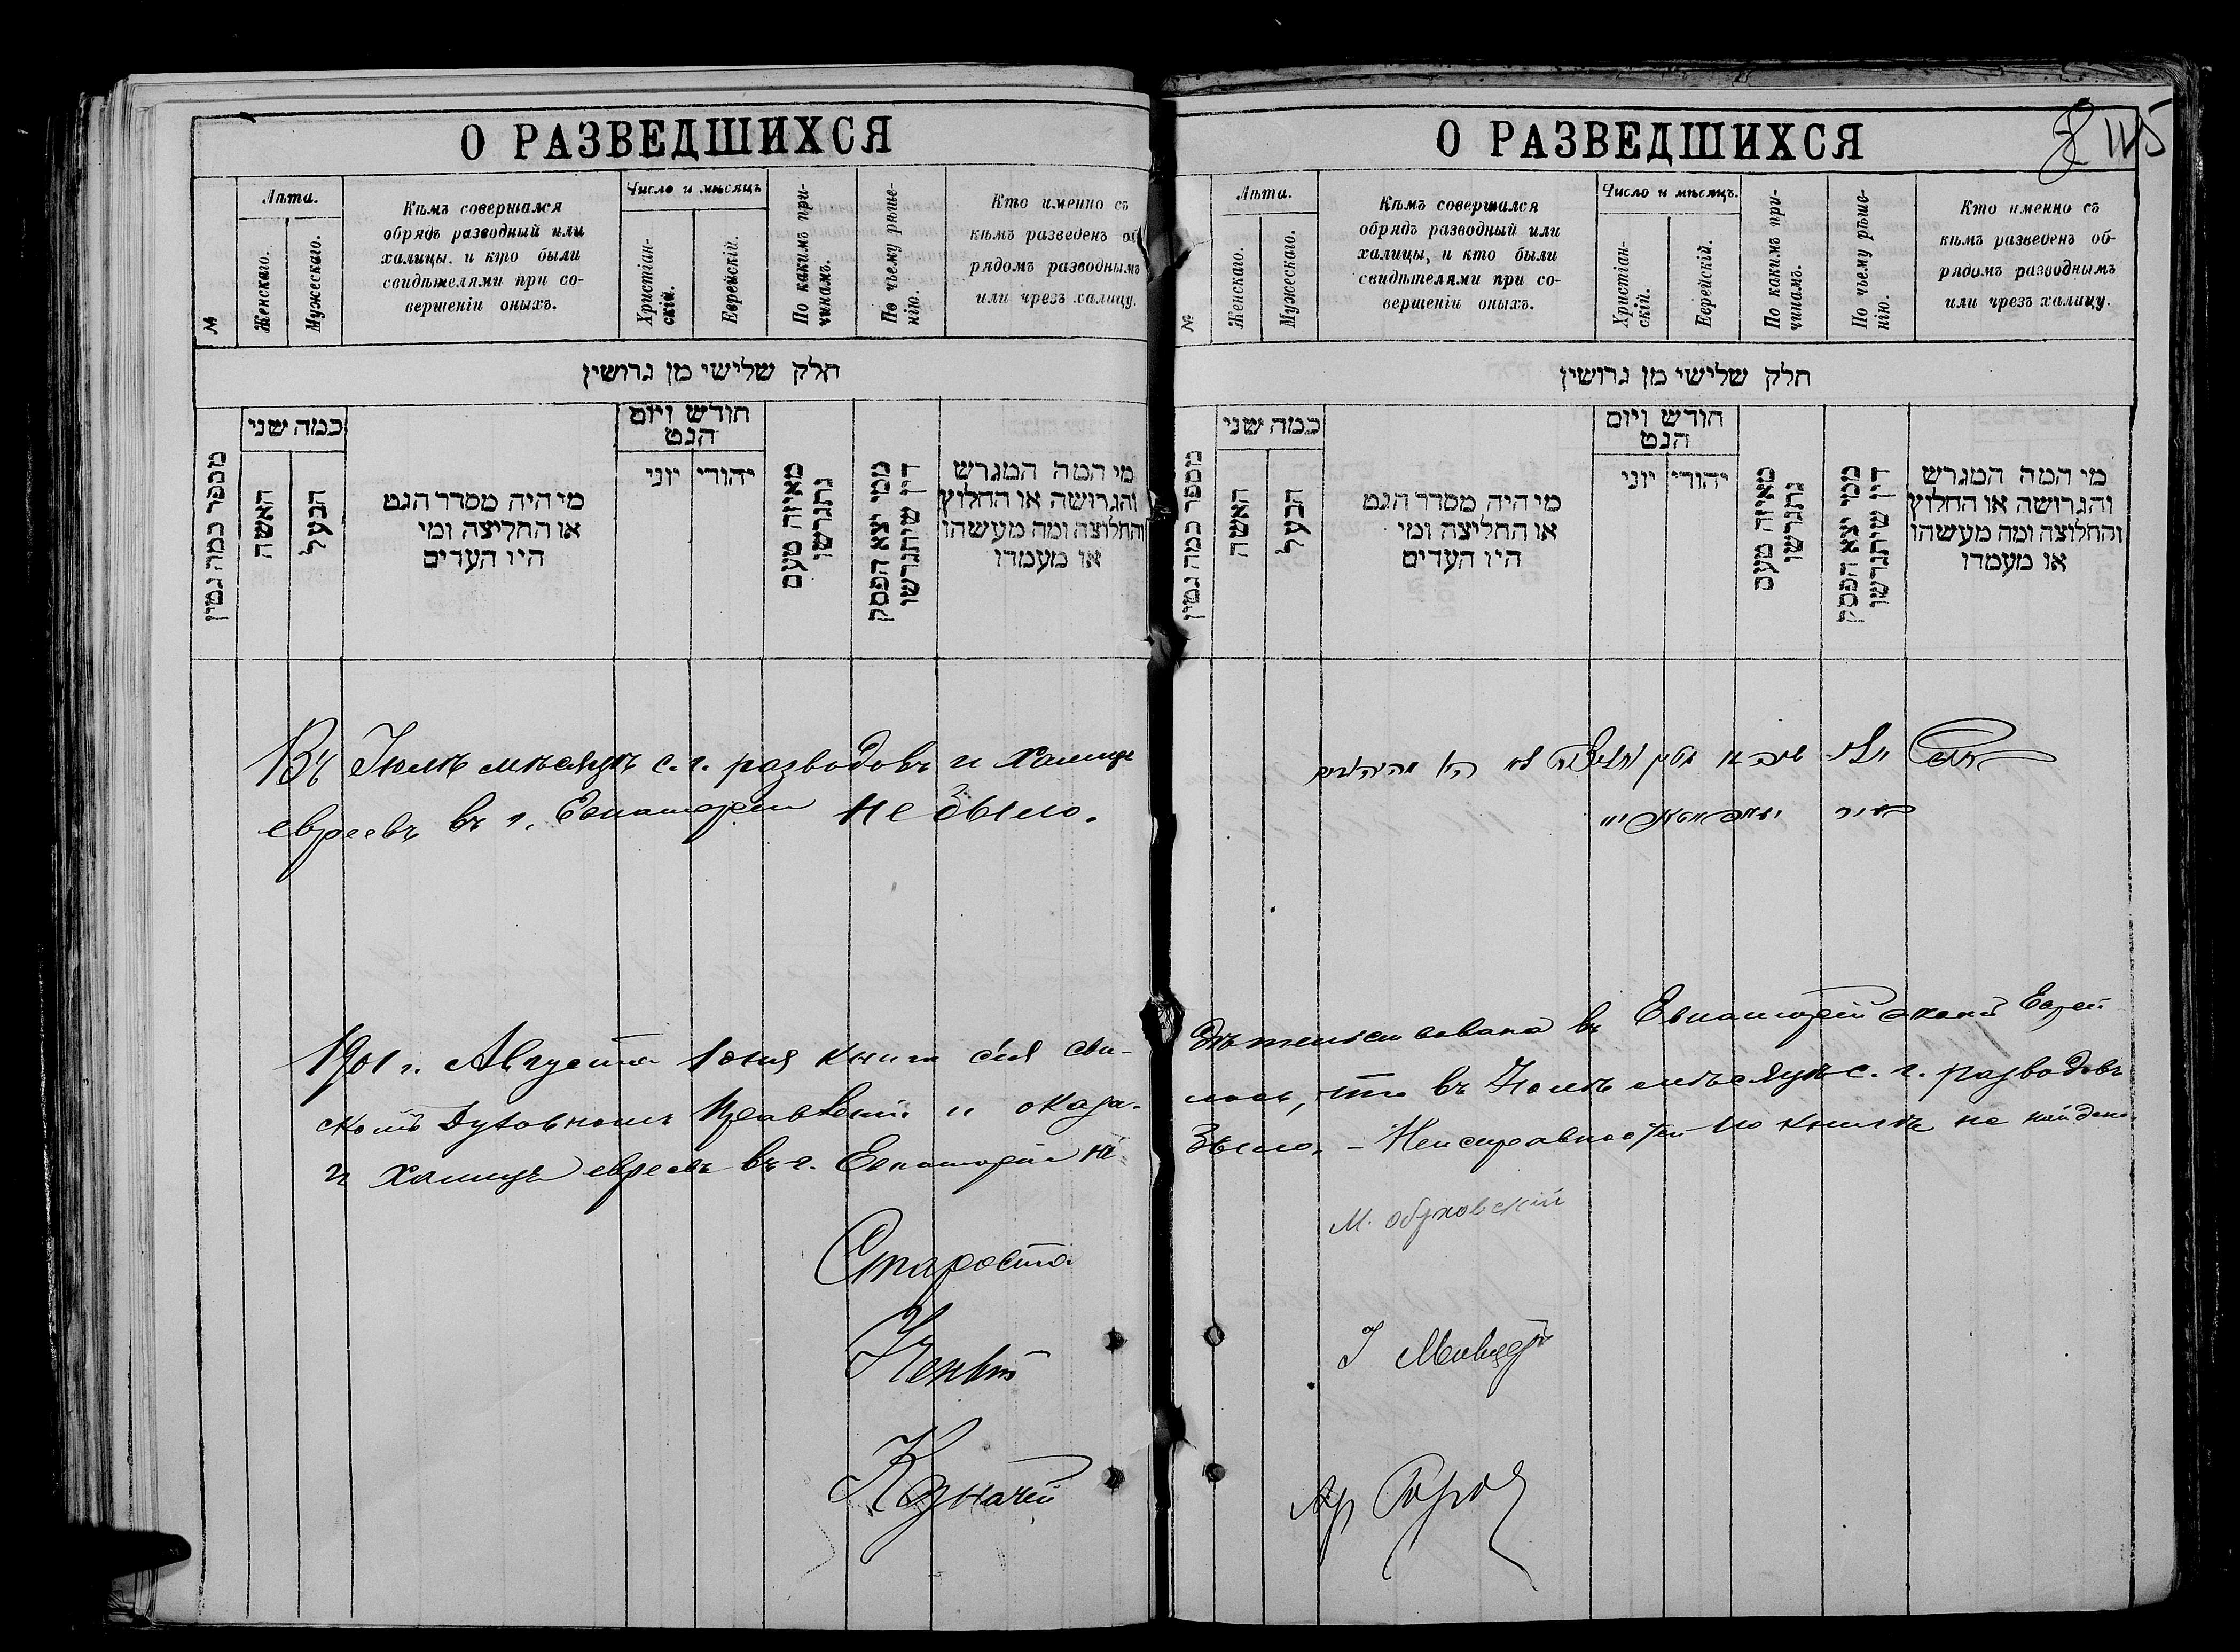 О РАЗВЕДШИХСЯ
№
Лѣта.
Женскаго.
Мужескаго.
Кѣмъ совершался
обрядъ разводный или
халицы, и кто были
свидѣтелями при со-
вершеніи оныхъ.
Число и мѣсяцъ
Христіан-
скій.
Еврейскій.
По какимъ при-
чинамъ.
По чьему рѣше-
нію.
Кто именно съ
кѣмъ разведенъ об
рядомъ разводнымъ
или чрезъ халицу.
חלק שלישי מן גרושין
מספר כמה גטין
כמה שני
האשה
הבעל
מי היה מסדר הגט
או החליצה ומי
היו העדים
חודש ויום
הגט
יהודי
יוני
מאיזה טעם
נתגרשו
ממי יצא הפסק
דין שיתגרשו
מי המה המגרש
והגרושה או החלוץ
והחלוצה ומה מעשהו
או מעמדו
Въ Іюлѣ мѣсяцѣ с. г. разводовъ и халицъ
евреевъ въ г. Евпаторіи не было.
1901 г. Августа 1 дня книга сія сви-
скомъ Духовномъ Правленіи и оказа-
и халицъ евреевъ въ г. Евпаторіи не
Староста
Казначей
О РАЗВЕДШИХСЯ
115
№
Лѣта.
Женскаго.
Мужескаго.
Кѣмъ совершался
обрядъ разводный или
халицы, и кто были
свидѣтелями при со-
вершеніи оныхъ.
Число и мѣсяцъ.
Христіан-
скій.
Еврейскій.
По какимъ при-
чинамъ.
По чьему рѣше-
нію.
Кто именно съ
кѣмъ разведенъ об-
рядомъ разводнымъ
или чрезъ халицу.
חלק שלישי מן גרושין
מספר כמה גטין
כמה שני
האשה
הבעל
מי היה מסדר הגט
או החליצה ומי
היו העדים
חודש ויום
הגט
יהודי
יוני
מאיזה טעם
נתגרשו
ממי יצא הפסק
דין שיתגרשו
מי המה המגרש
והגרושה או החלוץ
והחלוצה ומה מעשהו
או מעמדו
дѣтельствована въ Евпаторійскомъ Еврей-
лось, что въ Іюлѣ мѣсяцѣ с. г. разводовъ
было. – Неисправностей по книгѣ не найдено
М. Обуховскій